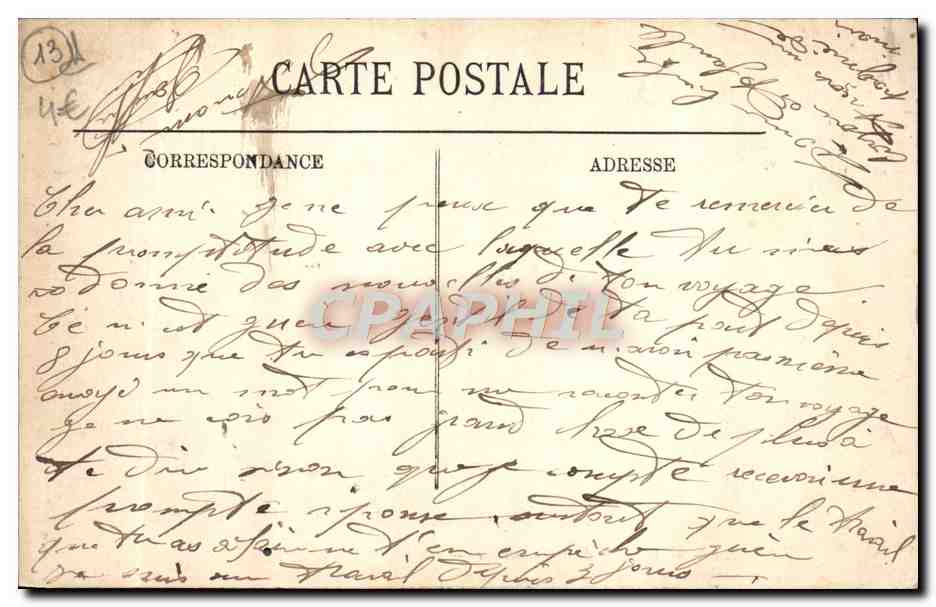 13
4€
CARTE POSTALE
CORRESPONDANCE
ADRESSE
Cher ami. Je ne peux que te remercier de
la promptitude avec laquelle tu m'as
donné des nouvelles de ton voyage
Cé n'est guere gentil de ta part depuis
8 jours que tu es parti de n'avoir pas même
envoyé un mot pour me raconter ton voyage
Je ne vois pas grand chose de plus à
te dire sinon que je compte recevoir une
prompte réponse surtout que le travail
que tu as à faire ne t'en empêche guère
Je suis au travail depuis 3 jours
CPAPHIL